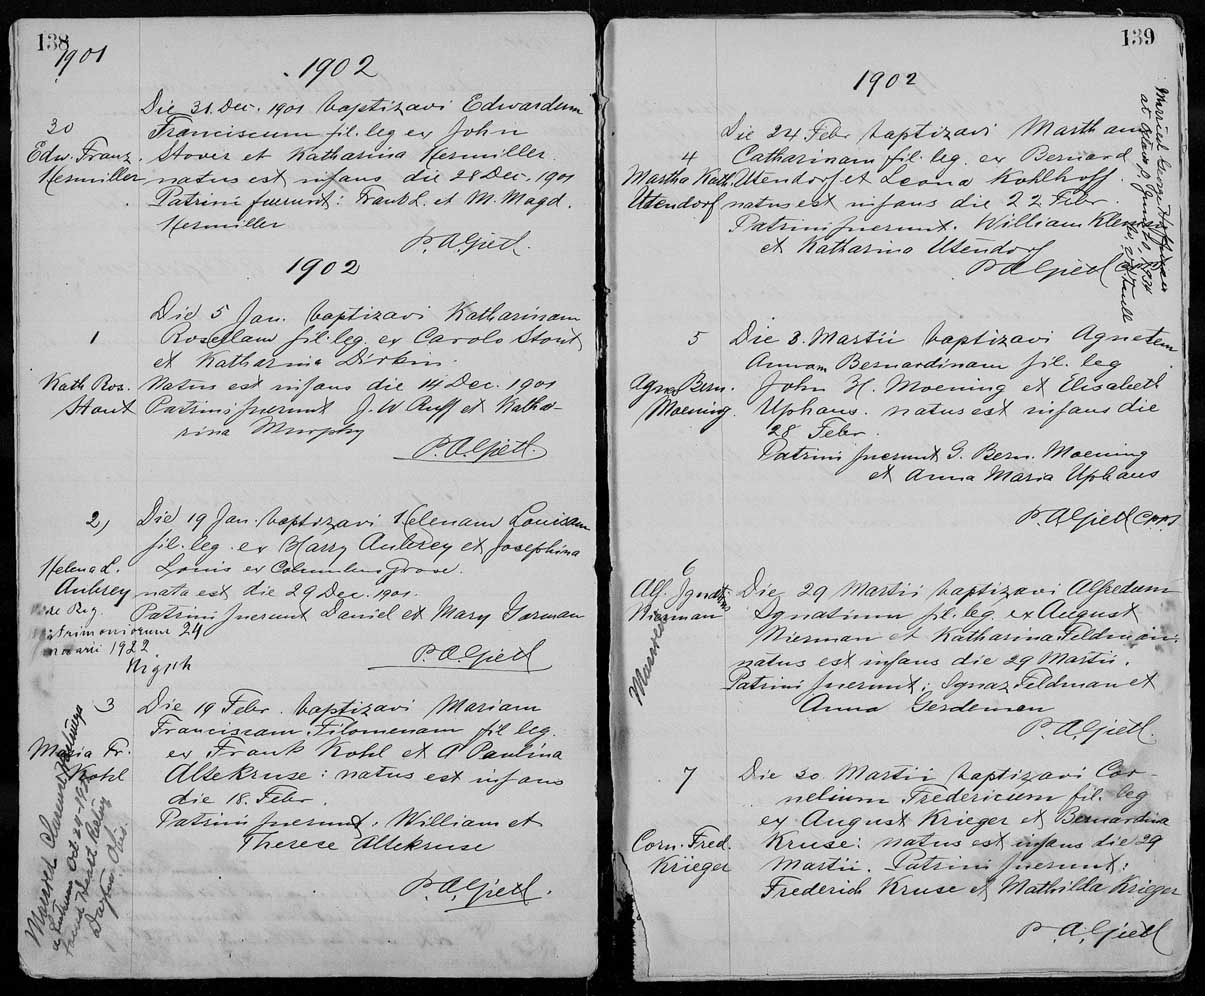 138
1901
1902
Die 31. Dec. 1901 baptizavi Edwardum
30
Franciscum fil. leg ex John
Edw. Franz.
Stover et Katharina Hermiller.
Hermiller
natus est infans die 28 Dec. 1901
Patrini fuerunt: Frank L. et M. Magd.
Hermiller
P. A. Gietl.
1902
Die 5 Jan. baptizavi Katharinam
1
Rosellam fil. leg. ex Carolo Stout
et Katharina Dirkin.
Kath Ros.
Natus est infans die 14 Dec. 1901
Stout
Patrini fuerunt J. W Ruff et Katha-
rina Murphy
P. A. Gietl.
2,
Die 19 Jan. baptizavi Helenam Louisam
fil. leg. ex Harry Aubrey et Josephina
Helena L.
Louis ex Columbus Grove.
Aubrey
nata est die 29 Dec. 1901.
Patrini fuerunt Daniel et Mary Gorman
24
1922
P. A. Gietl
3
Die 19 Febr. baptizavi Mariam
Franciscam Filomenam fil leg.
Maria Fr.
ex Frank Kohl et Paulina
Kohl
Altekruse: natus est infans
die 18. Febr.
Patrini fuerunt. William et
Therese Altekruse
P. A. Gietl.
Married Clarence
Oct 24 - 19
Dayton Ohio.
139
1902
Die 24 Febr baptizavi Martham
4
Catharinam fil. leg. ex Bernard
Martha Kath.
Utendorf et Leona Kohlhoff.
Utendorf
natus est infans die 22 Febr.
Patrini fuerunt. William
et Katharina Utendorf
P. A. Gietl
Married George
at June 20, 1934
5
Die 3. Martii baptizavi Agnetem
Annam Bernardinam fil. leg
Agn. Bern.
John H. Moening et Elisabeth
Moening.
Uphaus. natus est infans die
28 Febr.
Patrini fuerunt G. Bern. Moening
et Anna Maria Uphaus
P. A. Gietl C.PP.S
6
Alf. Ignatius
Die 29 Martii baptizavi Alfredum
Nierman
Ignatium fil. leg. ex August
Married
Nierman et Katharina Feldman:
natus est infans die 29 Martii.
Patrini fuerunt: Ignaz Feldman et
Anna Gerdeman
P. A. Gietl.
7
Die 30. Martii baptizavi Cor-
nelium Fredericum fil. leg
ex August Krieger et Bernardina
Corn. Fred.
Kruse: natus est infans die 29
Krieger
Martii. Patrini fuerunt:
Frederich Kruse et Mathilda Krieger
P. A. Gietl